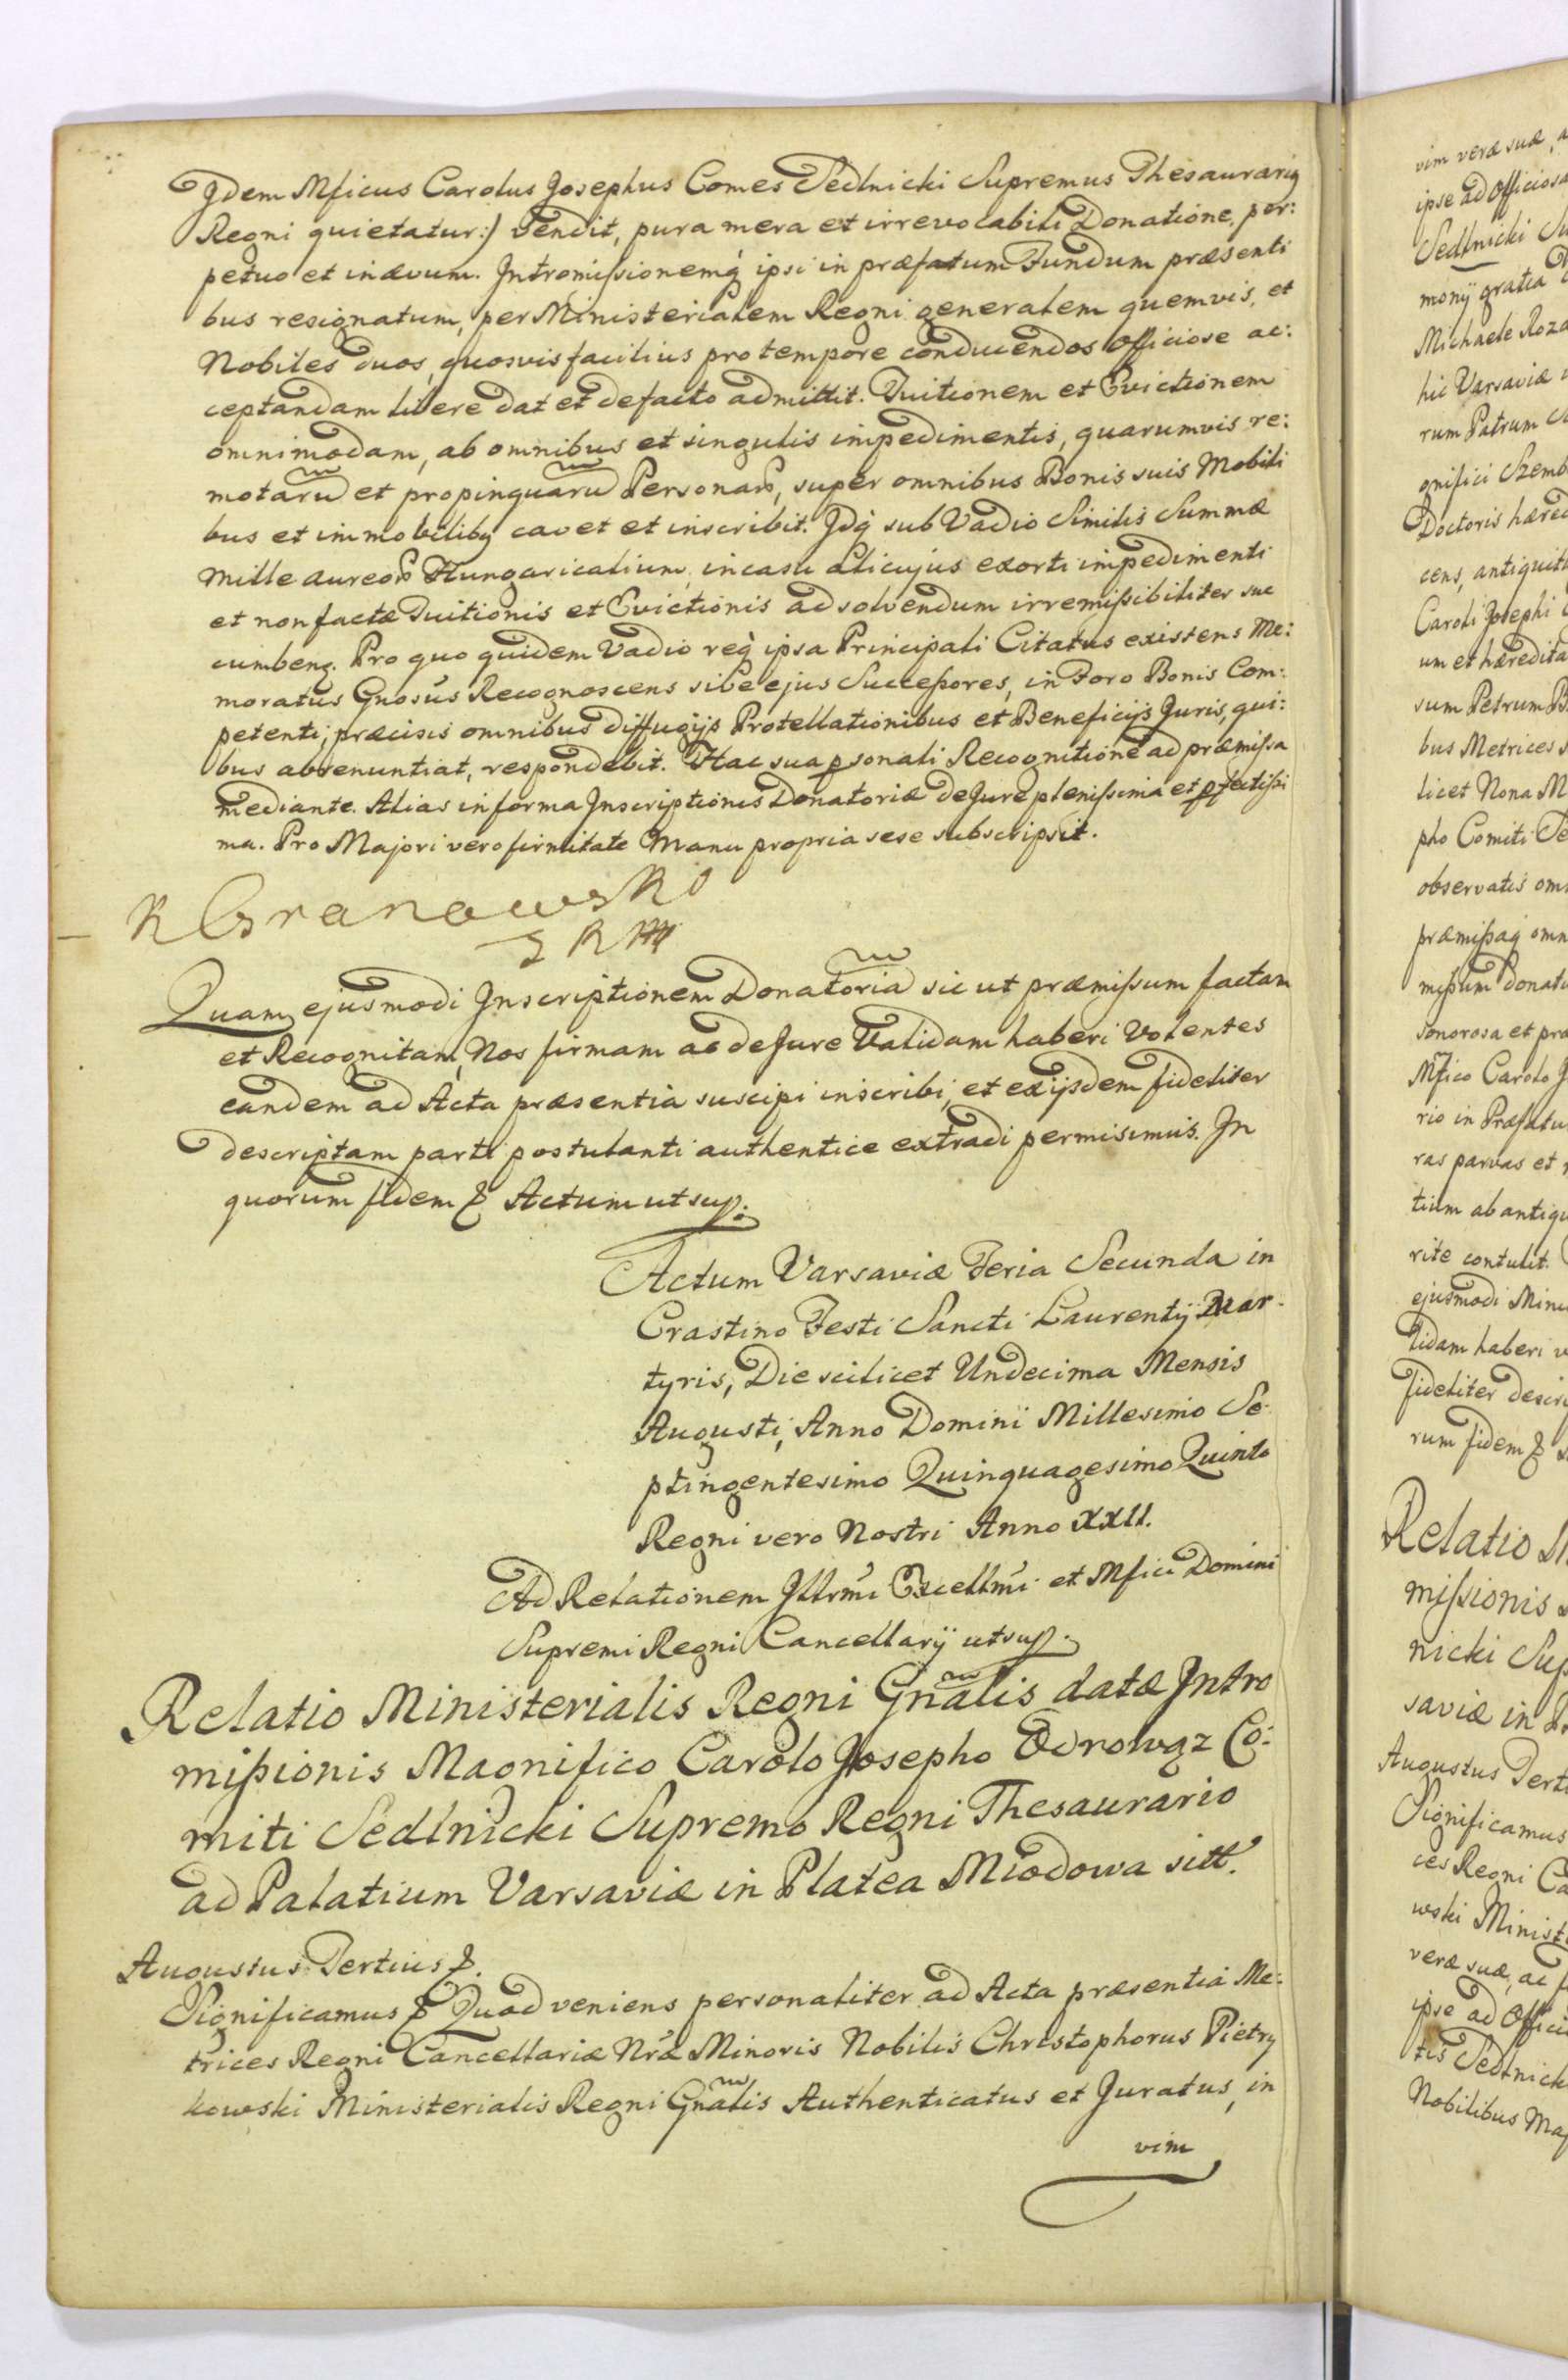 Jdem Mficus Carolus Josephus Comes Sedlnicki Supremus Thesaurariꝰ
Regni quietatur:) vendit, pura mera et irrevocabili Donatione, per:
petuo et in ævum. Intromissionemq́ ipsi in præfatum Fundum præsenti
bus resignatum, per Ministerialem Regni generalem quemvis, et
Nobiles duos, quosvis facilius pro tempore conducendos officiose ac:
ceptandam libere dat et de facto admittit. Tuitionem et Evictionem
omnimodam, ab omnibus et singulis impedimentis, quarumvis re:
motarũ et propinquarũ Personarꝫ, super omnibus Bonis suis Mobili
bus et immobilibꝰ cavet et inscribit. Jdq́ sub Vadio Similis Summæ
Mille aureorꝫ Hungaricalium, in casu alicujus exorti impedimenti
et non factæ Tuitionis et Evictionis ad solvendum irremissibiliter suc
cumbenꝫ. Pro quo quidem Vadio req̀ ipsa Principali Citatus existens Me:
moratus Gnosus Recognoscens sive ejus Successores, in Foro Bonis Com:
petenti, præcisis omnibus diffugijs Protellationibus et Beneficijs Juris, qui:
bus abrenuntiat, respondebit. Hac sua ꝑsonali Recognitione ad præmissa
mediante. Alias in forma Inscriptionis Donatoriæ de Jure plenissima et ꝑfectissi
ma. Pro Majori vero firmitate Manu propria sese subscripsit.
K Granowski
Quam ejusmodi Inscriptionem Donatoriã sic ut præmissum factam
et Recognitam, Nos firmam ac de Jure Validam haberi Volentes
eandem ad Acta præsentia suscipi inscribi, et ex ijsdem fideliter
descriptam parti postulanti authentice extradi permisimus. In
quorum fidem & Actum ut sup.
Actum Varsaviæ Feria Secunda in
Crastino Festi Sancti Laurentij Mar-
tyris, Die scilicet Undecima Mensis
Augusti, Anno Domini Millesimo Se-
ptingentesimo Quinquagesimo Quinto
Regni vero Nostri Anno XXII.
Ad Relationem Jllrmi Excellmi et Mfici Domini
Supremi Regni Cancellarij ut sup.
Relatio Ministerialis Regni Gnãlis datæ Intro
missionis Magnifico Carolo Josepho Odrowąz Co:
miti Sedlnicki Supremo Regni Thesaurario
ad Palatium Varsaviæ in Platea Miodowa sitt.
Augustus Tertius &.
Significamus & Quod veniens personaliter ad Acta præsentia Me:
trices Regni Cancellariæ Nræ Minoris Nobilis Christophorus Pietry
kowski Ministerialis Regni Gnãlis Authenticatus et Juratus, in
vim
vim veræ suæ, a
ipse ad Officiosa
Sedlnicki Su
monij gratia
Michaele Roza
hic Varsaviæ
rum Patrum
gnifici Szemb
Doctoris hæred
cens, antiquit
Caroli Josephi
um et hæredita
sum Petrum B
bus Metrices
licet Nona M
pho Comiti Se
observatis om
præmissaq́ omn
missum donat
sonorosa et pro
Mfico Carolo J
rio in Præfatu
ras parvas et
tium ab antiqu
rite contulit.
ejusmodi Mini
lidam haberi v
fideliter descri
rum fidem &
Relatio M
missionis
nicki Sup
saviæ in
Augustus Terti
Significamus
ces Regni Ca
wski Ministe
veræ suæ, ac
ipse ad Offici
tis Sedlnick
Nobilibus Ma